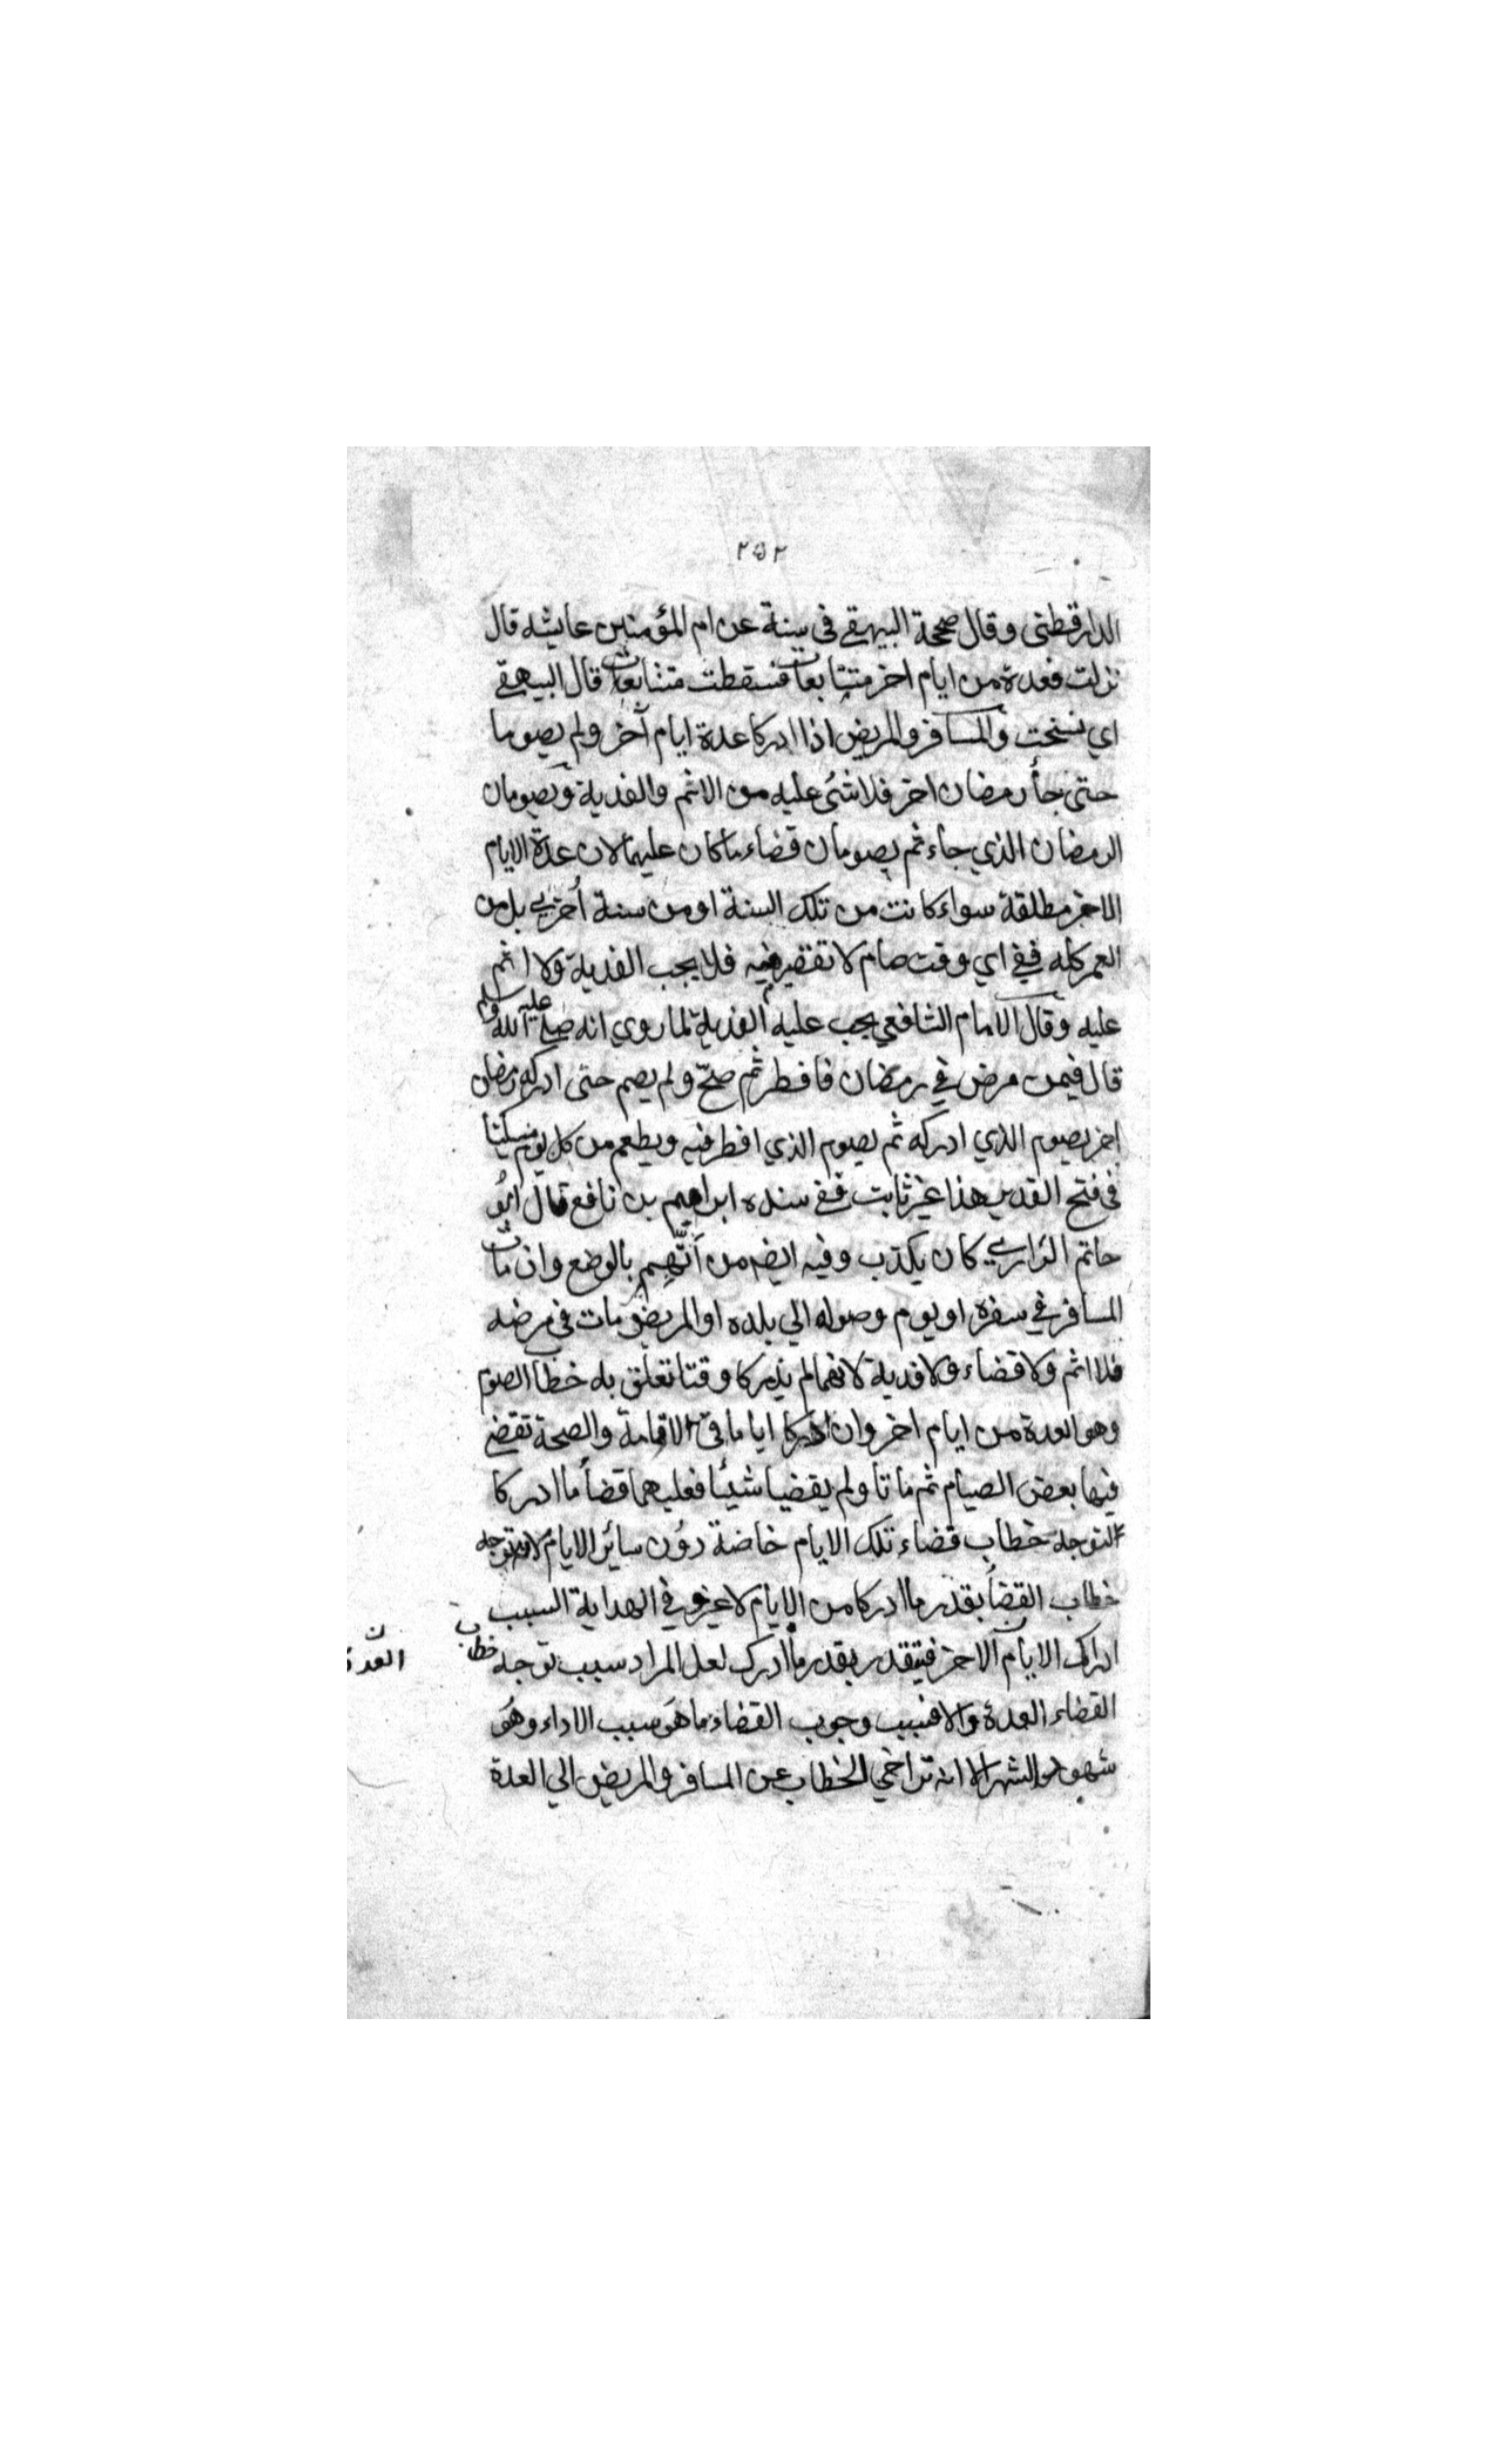 ٢٥٢
الدارقطني وقال صححة البيهقے فى سننة عن ام المؤمنين عايشه قال
نزلت فعدة من ايام اخر متتابعات فسقطت متتابعات قال البيهقے
اي نسخت والمسافر والمريض اذا ادركا عدة ايام آخر ولم يصوما
حتى جأ رمضان اخر فلا شئ عليه من الاثم والفدية ويصومان
الرمضان الذي جاء ثم يصومان قضاء ما كان عليهما لان عدة الايام
الاخر مطلقة سواء كانت من تلك السنة او من سنة أخري بل من
العمر كله ففي اي وقت صام لا تقصير فيه فلا يجب الفدية ولا اثم
عليه وقال الامام الشافعي يجب عليه الفدية لما روي انه صلے الله عليه وسلم
قال فيمن مرض في رمضان فافطر ثم صحّ ولم يصم حتى ادركه رمضان
اخر يصوم الذي ادركه ثم يصوم الذي افطر فيه ويطعم من كل يوم مسكينا
في فتح القدير هذا غير ثابت ففے سنده ابراهيم بن نافع قال ابو
حاتم الرازي كان يكذب وفيه ايضه من أتّهم بالوضع وان مات
المسافر في سفره او يوم وصوله الي بلده او المريض مات في مرضه
فلا اثم ولا قضاء ولا فدية لانهما لم يدركا وقتا تعلق به خطاب الصوم
وهو العدة من ايام اخر وان ادركا اياما في الاقامة والصحة تقضے
فيها بعض الصيام ثم ماتا ولم يقضيا شيئا فعليهما قضأ ما ادركا
لتوجه خطاب قضاء تلك الايام خاصة دون سائر الايام لا يتوجه
خطاب القضأ بقدر ما ادركا من الايام لا غير وفي الهداية السبب
ادراك الايام الاخر فيتقدر بقدر ما ادرك لعل المراد سبب توجه خطاب
العدة
القضاء العدة والا فسبب وجوب القضاء ما هو سبب الاداء وهو
شهود الشهر الا انه تراخي الخطاب عن المسافر والمريض الي العدة